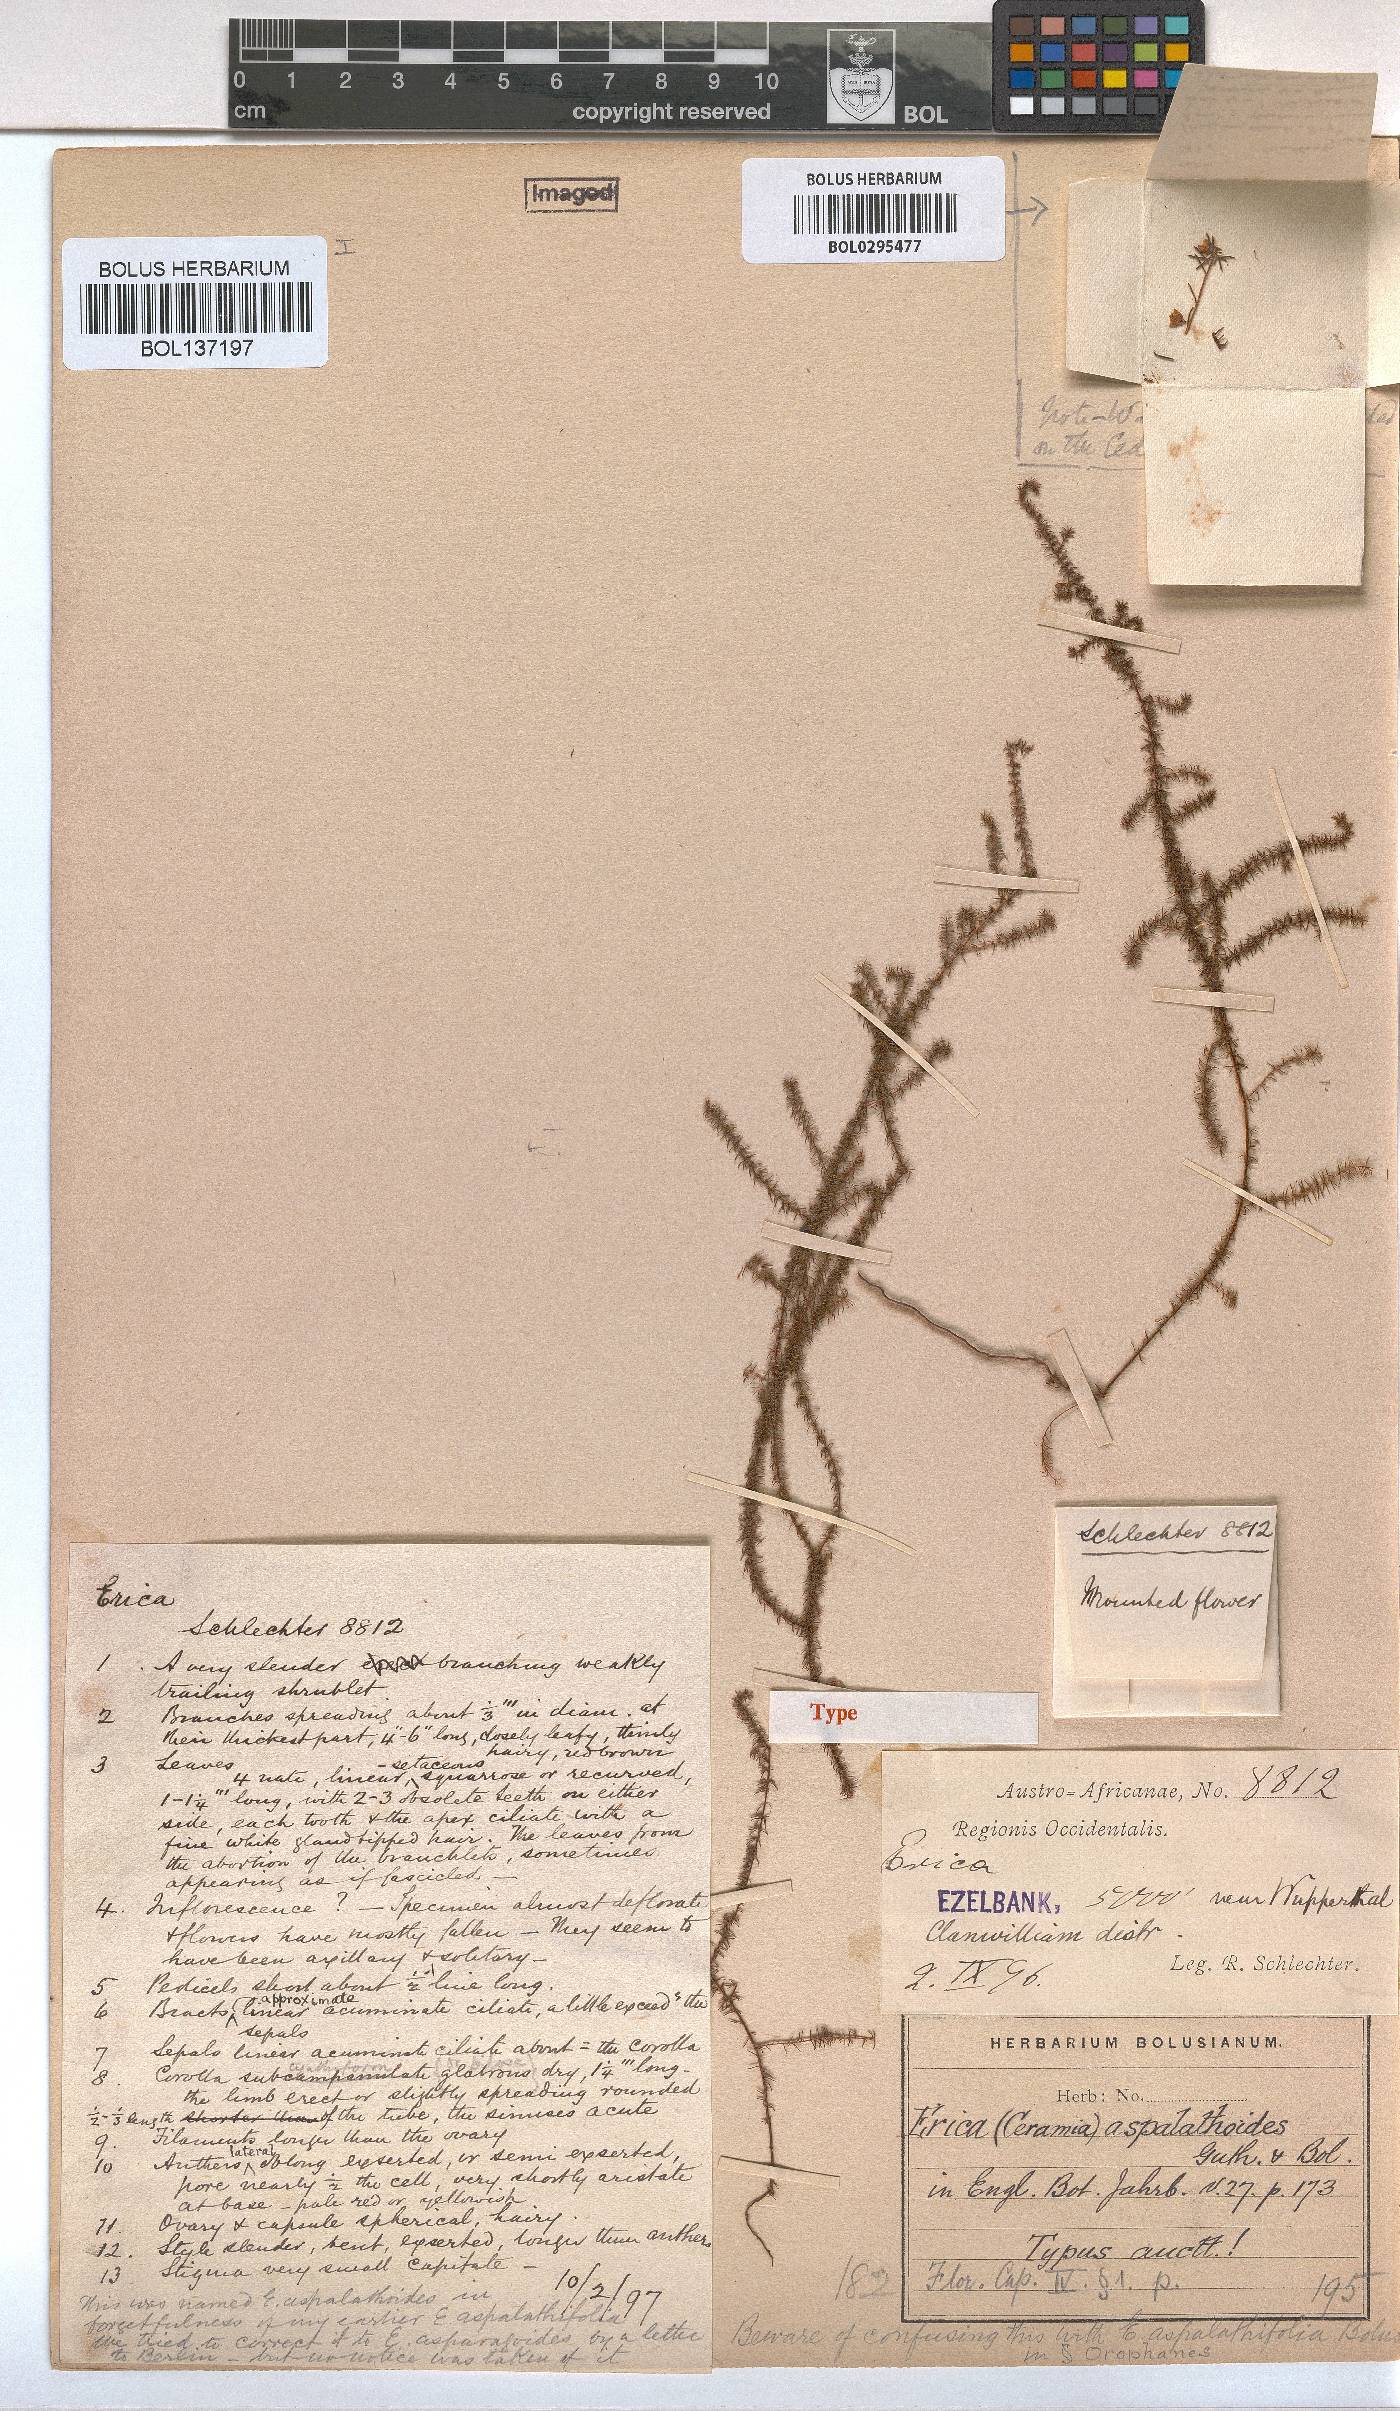 0 1 2 3 4 5 6 7 8 9 10
cm
copyright reserved
BOL
Imaged
BOLUS HERBARIUM
BOL0295477
BOLUS HERBARIUM
BOL137197
I
Note
on the Ced
Schlechter 8812
Mounted flower
Type
Erica
Schlechter 8812
1 . A very slender branching weakly
trailing shrublet
2 Branches spreading about 1/3''' in diam. at
their thickest part, 4"-6" long, closely leafy, thinly
hairy, red brown
3 Leaves
4 nate, linear-setaceous squarrose or recurved,
1-1¼''' long, with 2-3 obsolete teeth on either
side, each tooth & the apex ciliate with a
fine white gland tipped hair. The leaves from
the abortion of the branchlets, sometimes
appearing as if fascicled. —
4. Inflorescence ? — Specimen almost deflorate
& flowers have mostly fallen — They seem to
have been axillary & solitary —
5 Pedicels short about ½ line long.
6 Bracts approximate linear acuminate ciliate, a little exceedg the
sepals
7 Sepals linear acuminate ciliate about = the corolla
8. Corolla subcampanulate glabrous dry, 1¼''' long-
the limb erect or slightly spreading rounded
½-⅓ length shorter than of the tube, the sinuses acute
9. Filaments longer than the ovary
10 Anthers lateral oblong exserted, or semi exserted,
pore nearly ½ the cell, very shortly aristate
at base - pale red or yellowish
11. Ovary & capsule spherical, hairy.
12. Style slender, bent, exserted, longer than anthers
13 Stigma very small capitate —
10/2/97
This was named E. aspalathoides in
forgetfulness of my earlier E aspalathifolia
We tried to correct it to E. asparagoides by a letter
to Berlin - but no notice was taken of it
Austro=Africanae, No. 8812
Regionis Occidentalis.
Erica
EZELBANK, 5000' near Wupperthal
Clanwilliam distr.
2. IX 96.
Leg. R. Schlechter.
HERBARIUM BOLUSIANUM.
Herb: No.
Erica (Ceramia) aspalathoides
Guth. & Bol.
in Engl. Bot. Jahrb. v.27. p. 173
Typus auctt.!
182
Flor. Cap. IV. §1. p. 195
Beware of confusing this with E aspalathifolia Bolus
in § Orophanes